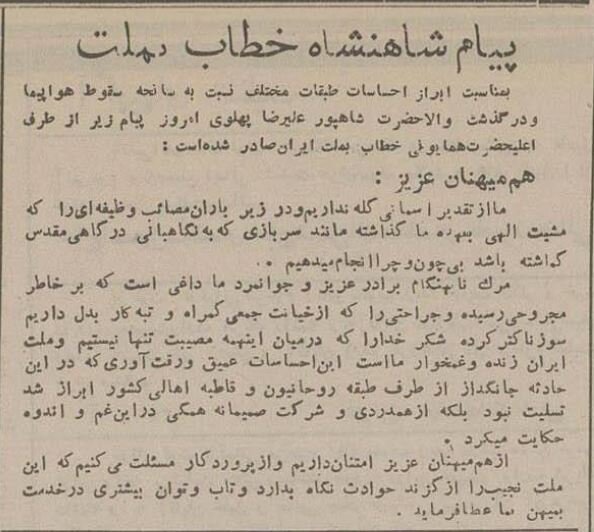 پیام شاهنشاه خطاب بملت
بمناسبت ابراز احساسات طبقات مختلف نسبت به سانحه سقوط هواپیما
ودرگذشت والاحضرت شاهپور علیرضا پهلوی امروز پیام زیر از طرف
اعلیحضرت همایونی خطاب بملت ایران صادر شده‌است :
هم‌میهنان عزیز :
ما از تقدیر اسمانی گله نداریم ودر زیر باران مصائب وظیفه‌ای را که
مشیت الهی بعهده ما گذاشته مانند سربازی که به نگاهبانی درگاهی مقدس
گماشته باشد بی‌چون و چرا انجام میدهیم .
مرگ نابهنگام برادر عزیز و جوانمرد ما داغی است که بر خاطر
مجروحی رسیده و جراحتی را که از خیانت جمعی گمراه و تبه‌کار بدل داریم
سوزناکتر کرده شکر خدا را که درمیان اینهمه مصیبت تنها نیستیم وملت
ایران زنده وغمخوار مااست این احساسات عمیق ورقت‌آوری که در این
حادثه جانگداز از طرف طبقه روحانیون و قاطبه اهالی کشور ابراز شد
تسلیت نبود بلکه ازهمدردی و شرکت صمیمانه همگی دراین غم و اندوه
حکایت میکرد .
ازهم‌میهنان عزیز امتنان داریم و از پروردگار مسئلت می‌کنیم که این
ملت نجیب را از گزند حوادث نگاه بدارد وتاب وتوان بیشتری درخدمت
بمیهن بما عطا فرماید .